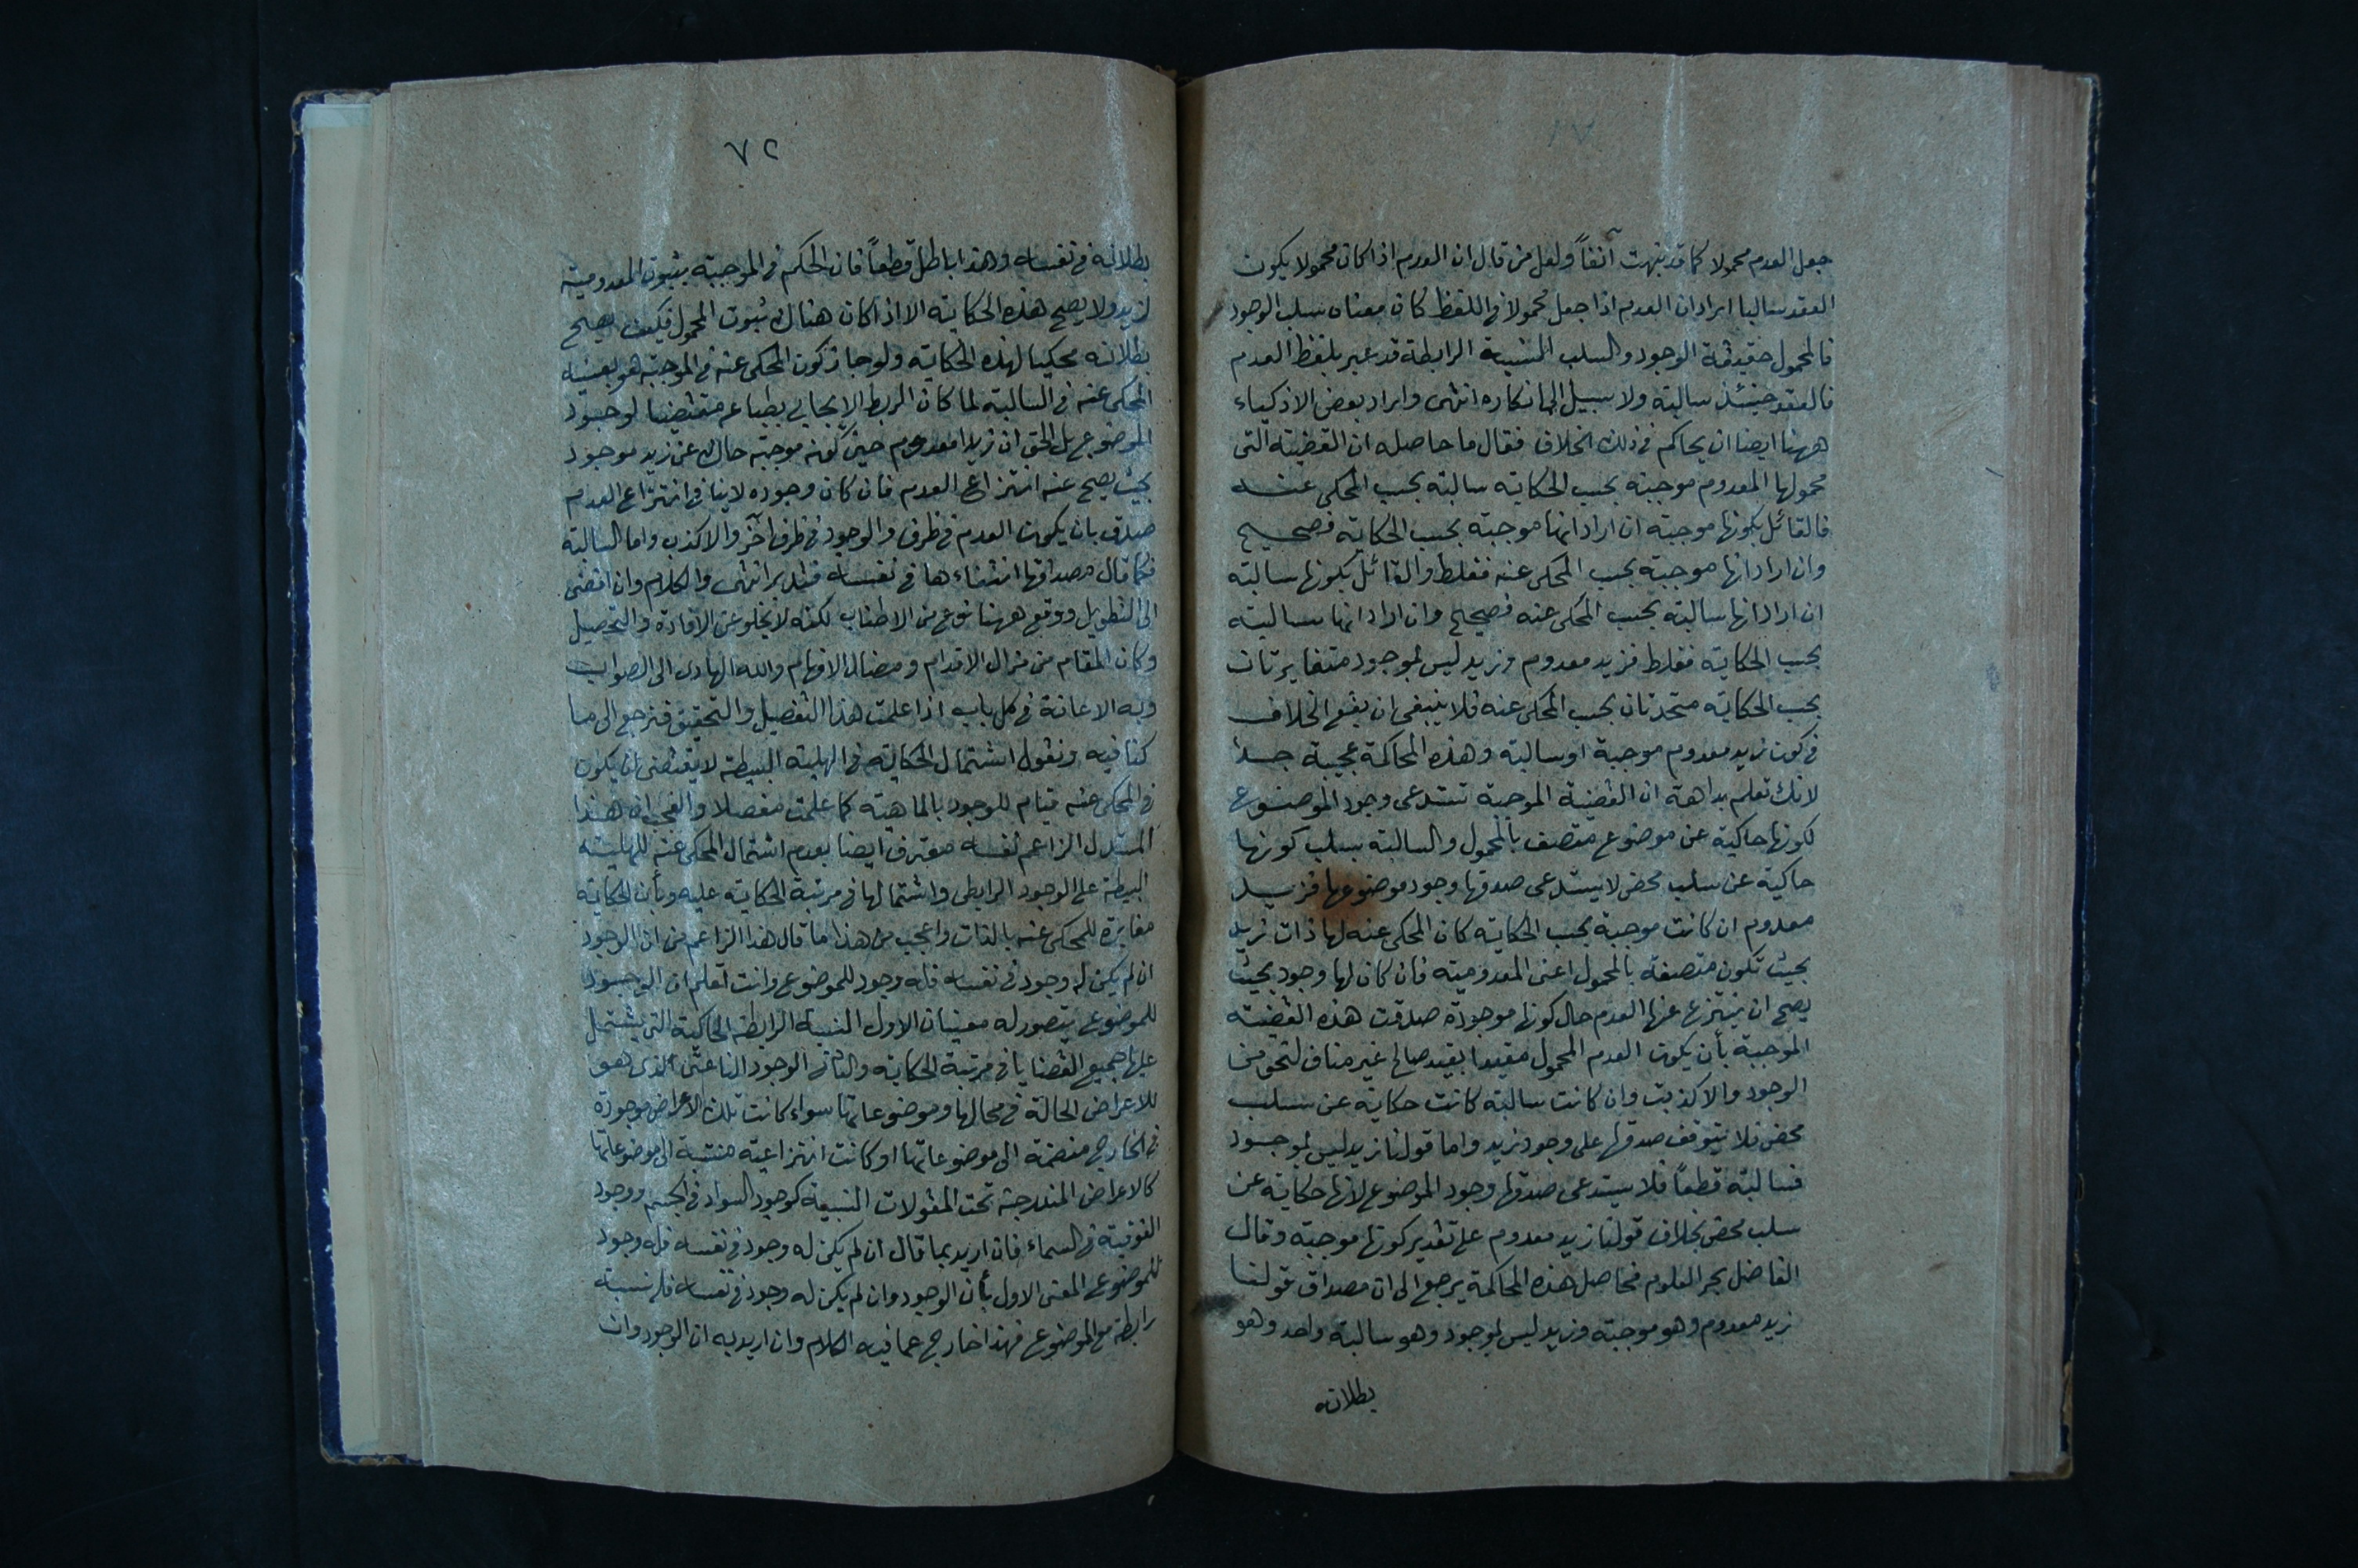 جعل العدم محمولا كما قد نبهت آنفاً ولعل من قال ان العدم اذا كان محمولا يكون
العقد سالبا اراد ان العدم اذا جعل محمولا فى اللفظ كان معناه سلب الوجود
فالمحمول حقيقة الوجود والسلب النسبية الرابطة قد عبر بلفظ العدم
فالعقد حينئذ سالبة ولا سبيل الى انكاره انتهى واراد بعض الاذكياء
ههنا ايضا ان يحاكم فى ذلك الخلاف فقال ما حاصله ان القضية التى
محمولها المعدوم موجبة بحسب الحكاية سالبة بحسب المحكى عنه
فالقائل بكونها موجبة ان اراد انها موجبة بحسب الحكاية فصحيح
وان اراد انها موجبة بحسب المحكى عنه فغلط والقائل بكونها سالبة
ان اراد انها سالبة بحسب المحكى عنه فصحيح وان اراد انها سالبة
بحسب الحكاية فغلط فزيد معدوم وزيد ليس بموجود متغايرتان
بحسب الحكاية متحدتان بحسب المحكى عنه فلا ينبغى ان يقع الخلاف
فى كون زيد معدوم موجبة او سالبة وهذه المحاكمة عجيبة جدا
لانك تعلم بداهة ان القضية الموجبة تستدعى وجود الموضوع
لكونها حاكية عن موضوع متصف بالمحمول والسالبة بسلب كونها
حاكية عن سلب محض لا يستدعى صدقها وجود موضوعها فزيد
معدوم ان كانت موجبة بحسب الحكاية كان المحكى عنه لها ذات زيد
بحيث تكون متصفة بالمحمول اعنى المعدومية فان كان لها وجود بحيث
يصح ان ينتزع عنها العدم حال كونها موجودة صدقت هذه القضية
الموجبة بأن يكون العدم المحمول مقيدا بقيد صالح غير مناف لنحو من
الوجود والا كذبت وان كانت سالبة كانت حكاية عن سلب
محض فلا يتوقف صدقها على وجود زيد واما قولنا زيد ليس بموجود
فسالبة قطعاً فلا يستدعى صدقها وجود الموضوع لانها حكاية عن
سلب محض بخلاف قولنا زيد معدوم على تقدير كونها موجبة وقال
الفاضل بحر العلوم فحاصل هذه المحاكمة يرجع الى ان مصداق قولنا
زيد معدوم وهو موجبة وزيد ليس بموجود وهو سالبة واحد وهو
بطلانه
٧٢
بطلانه فى نفسه وهذا باطل قطعاً فان الحكم فى الموجبة بثبوت المعدومية
لزيد ولا يصح هذه الحكاية الا اذا كان هناك ثبوت المحمول فكيف يصح
بطلانه محكيا لهذه الحكاية ولو جاز كون المحكى عنه فى الموجبة هو بعينه
المحكى عنه فى السالبة لما كان الربط الايجابى بطباعه مقتضيا لوجود
الموضوع بل الحق ان زيدا معدوم حين كونه موجبة حاك عن زيد موجود
بحيث يصح عنه انتزاع العدم فان كان وجوده لا ينافى انتزاع العدم
صدق بان يكون العدم فى ظرف والوجود فى ظرف آخر والا كذب واما السالبة
فكما قال مصداقها انتفاءها فى نفسه فتدبر انتهى والكلام وان افضى
الى التطويل ووقع ههنا نوع من الاطناب لكنه لا يخلو عن الافادة والتحصيل
وكان المقام من مزال الاقدام ومضال الافهام والله الهادى الى الصواب
وبه الاعانة فى كل باب اذا علمت هذا التفصيل والتحقيق فنرجع الى ما
كنا فيه ونقول اشتمال الحكاية فى الهلية البسيطة لا يقتضى ان يكون
فى المحكى عنه قيام للوجود بالماهية كما علمت مفصلا والعجب ان هذا
المستدل الزاعم نفسه معترف ايضا بعدم اشتمال المحكى عنه للهلية
البسيطة على الوجود الرابطى واشتمالها فى مرتبة الحكاية عليه وبأن الحكاية
مغايرة للمحكى عنه بالذات واعجب من هذا ما قال هذا الزاعم من ان الوجود
ان لم يكن له وجود فى نفسه فله وجود للموضوع وانت تعلم ان الوجود
للموضوع يتصور له معنيان الاول النسبة الرابطة الحاكية التى يشتمل
عليها جميع القضايا فى مرتبة الحكاية والثانى الوجود الناعتى الذى هو
للاعراض الحالة فى محالها وموضوعاتها سواء كانت تلك الاعراض موجودة
فى الخارج منضمة الى موضوعاتها او كانت انتزاعية منتسبة الى موضوعاتها
كالاعراض المندرجة تحت المقولات النسبية كوجود السواد فى الجسم ووجود
الفوقية فى السماء فان اريد بما قال ان لم يكن له وجود فى نفسه فله وجود
للموضوع المعنى الاول بأن الوجود وان لم يكن له وجود فى نفسه فله نسبة
رابطة مع الموضوع فهذا خارج عما فيه الكلام وان اريد به ان الوجود وان